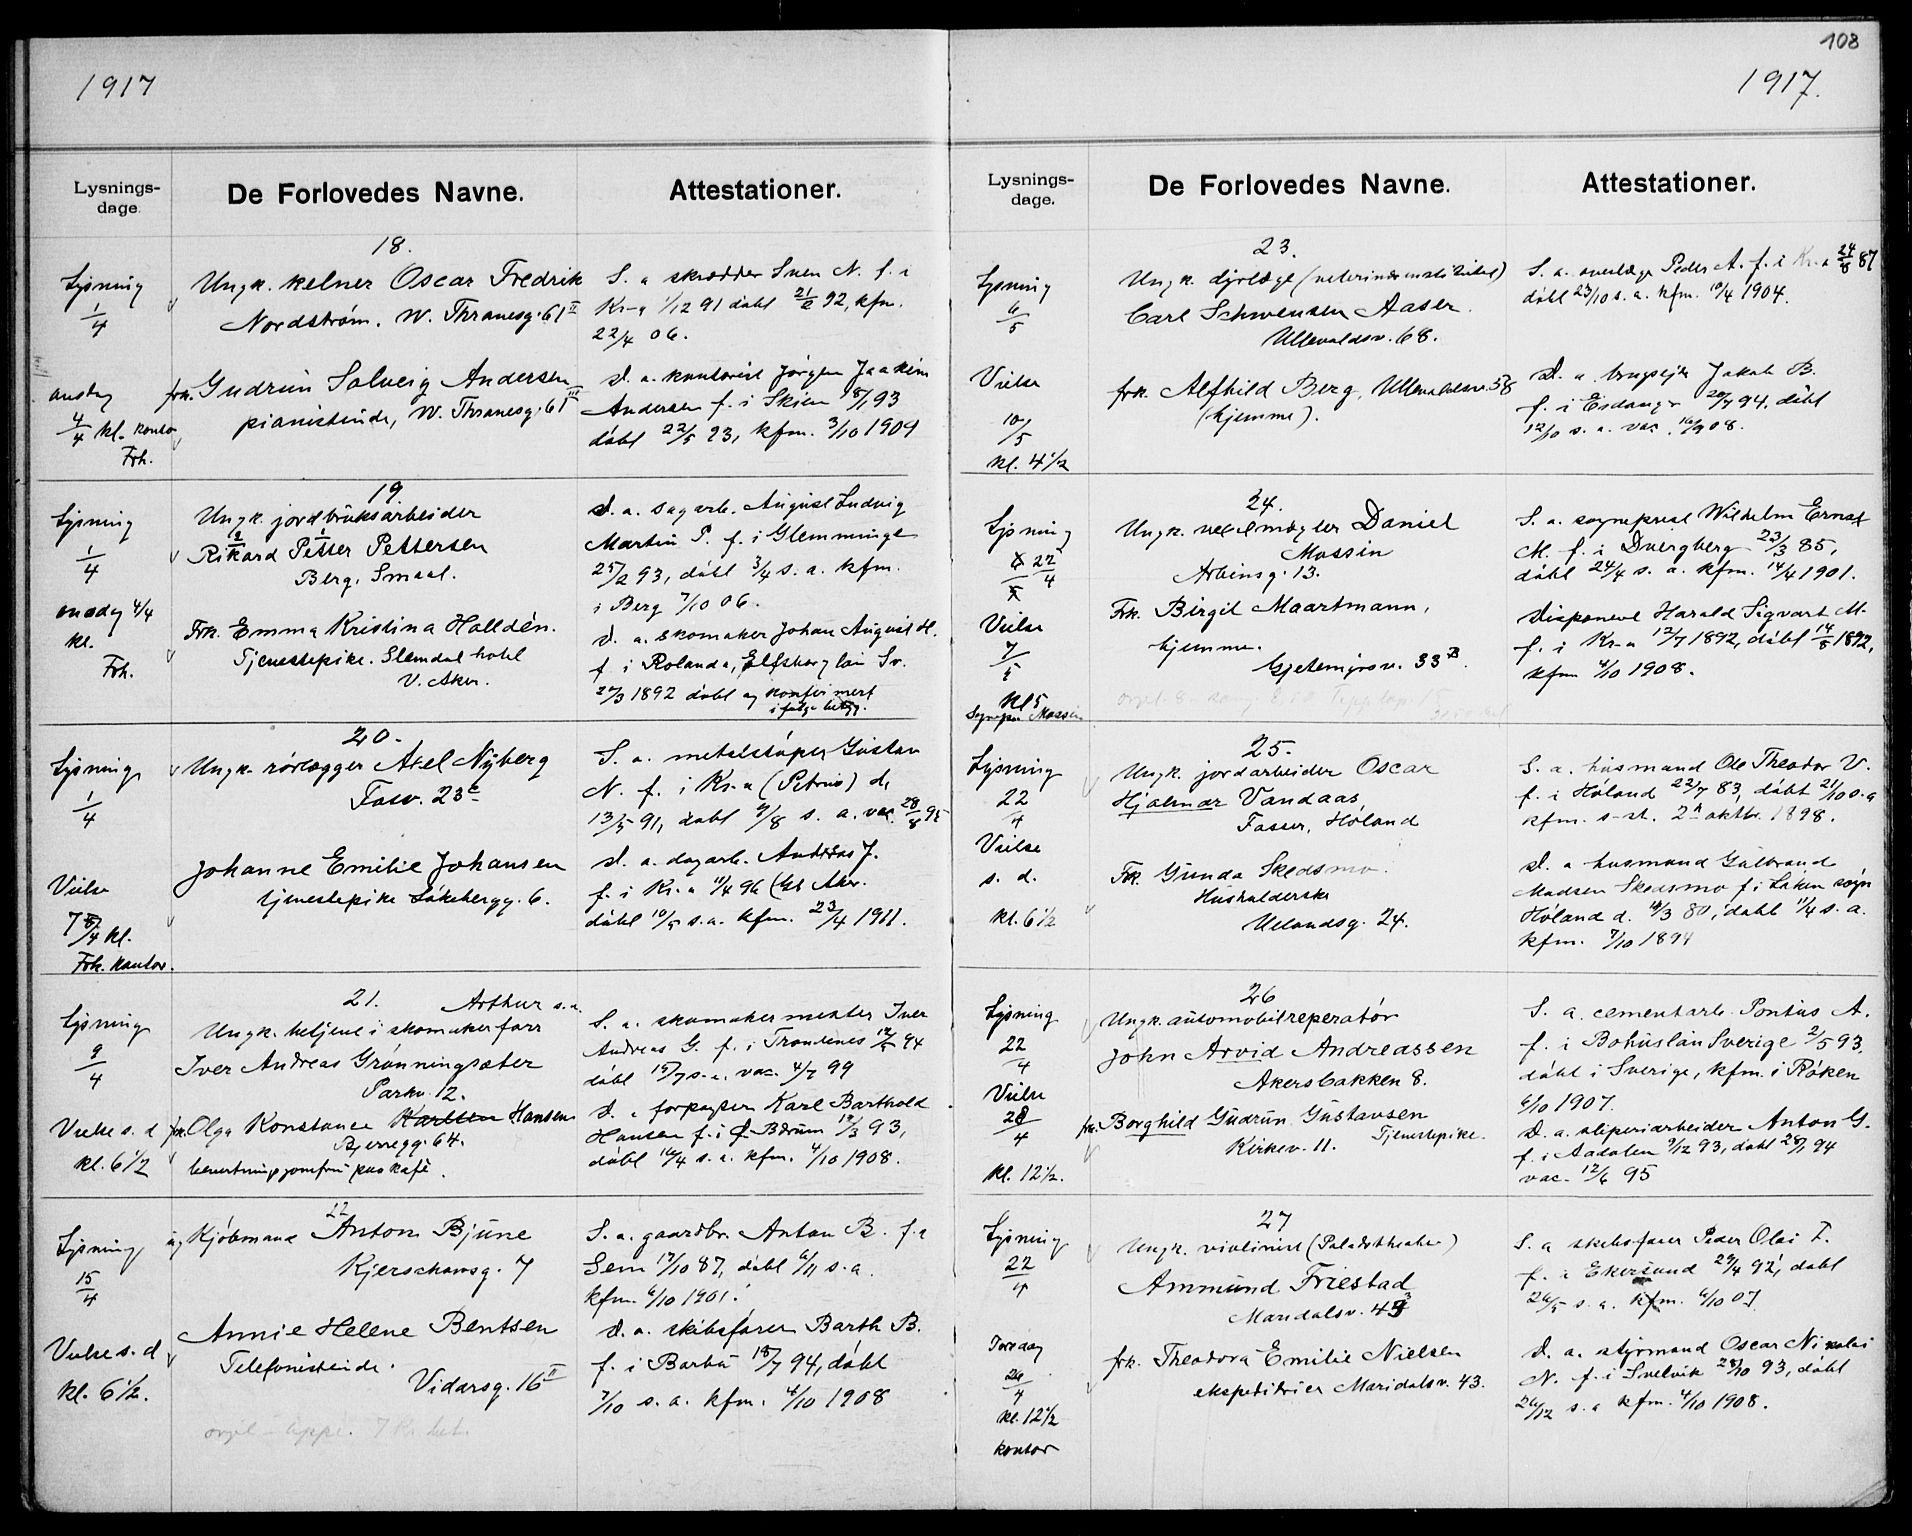 1917
Lysnings-
dage.
De Forlovedes Navne.
Attestationer.
18.
Lysning
1/4
Ungk. kelner Oscar Fredrik
Nordstrøm. W. Thranesg. 61 II
S. a skrædder Sven N. f. i
Kr-a 1/12 91 døbt 21/2 92, kfm.
22/4 06.
onsdag
4/4 kl. kontor
Frh.
frk. Gudrun Solveig Andersen
pianistinde, W. Thranesg. 61 III
D. a. kontorist Jørgen Joakim
Andersen f. i Skien 8/1 93
døbt 22/5 93, kfm. 3/10 1909
19.
Lysning
1/4
Ungk. jordbruksarbeider
Rikard Petter Pettersen
Berg, Smaal.
S. a. sagarb. August Ludvig
Martin P. f. i Glemminge
25/2 93, døbt 3/4 s. a. kfm.
i Berg 7/10 06.
onsdag 4/4
kl.
Frh.
Frk. Emma Kristina Halldén.
Tjenestepike. Slemdal hotel
V. Aker.
D. a. skomaker Johan August H.
f. i Rolanda, Elfsborg län Sv.
24/3 1892 døbt og konfirmert
ifølge bevg.
20.
Lysning
1/4
Ungk. rørlægger Axel Nyberg
Fosv. 23 c
S. a. metalstøper Gustav
N. f. i Kr.-a (Petrus) d.
13/5 91, døbt 9/8 s. a. vac. 28/8 95
Vielse
7/4 kl.
Frh. kontor.
Johanne Emilie Johansen
tjenestepike Løkebergg. 6.
D. a. dagarb. Andreas J.
f. i Kr.-a 11/4 96 (Gl. Aker.
døbt 10/5 s.a. kfm. 23/4 1911.
21.
Arthur s.a.
Lysning
9/4
Ungk. betjent i skomakerforr
Iver Andreas Grønningsæter
Parkv. 12.
S. a. skomakermester Iver
Andreas G. f. i Trondenes 12/5 94
døbt 15/7 s.a. vac. 4/7 99
Vielse s. d
kl. 6 1/2
fr. Olga Konstance Karlsen Hansen
Bjerregg. 64.
bevertningsjomfru paa kafé.
D. a forpagter Karl Barthold
Hansen f. i Bærum 12/3 93,
døbt 16/4 s. a. kfm. 4/10 1908.
22
Lysning
15/4
ug Kjøbmand Anton Bjune
Kjerschowsg. 7
S. a. gaardbr. Anton B. f. i
Sem 17/10 87, døbt 6/11 s. a.
kfm. 6/10 1901.
Vielse s. d
kl. 6 1/2.
Annie Helene Bentsen
Telefonistinde.
Vidarsg. 16 II
D. a. skibsfører Barth B.
f. i Barbu 18/7 94, døbt
7/10 s. a. kfm. 4/10 1908
108
1917.
Lysnings-
dage.
De Forlovedes Navne.
Attestationer.
23.
Lysning
6/5
Ungk. dyrlæge (veterinærinstitutet)
Carl Schwensen Aaser.
Ullevaldsv. 68.
S. a. overlæge Peder A. f. i Kr.a 24/8 87
døbt 23/10 s. a. kfm. 10/4 1904.
Vielse
10/5
kl. 4 1/2
frk. Alfhild Berg, Ullevaldsv. 58
(hjemme).
D. a. brugseier Jakob B.
f. i 20/7 94, døbt
12/10 s. a. vac. 16/9 08.
24.
Lysning
22/4
Ungk. Daniel
Mossin
Arbinsg. 13.
S. a. sogneprest Wilhelm Ernst
M. f. i Dvergberg 23/3 85,
døbt 24/4 s. a. kfm. 14/4 1901.
Vielse
7/5
kl 5
Sognepr. Mossin
Frk. Birgit Maartmann,
hjemme.
Gjetemyrsv. 33 B.
Disponent Harald Sigvart M.
f. i Kr.-a 12/7 1892, døbt 14/8 1892,
kfm 4/10 1908.
25.
Lysning
22/4
Ungk. jordarbeider Oscar
Hjalmar Vandaas,
Fosser, Høland
S. a. husmand Ole Theodor V.
f. i Høland 22/7 83, døbt 21/10 s. a
kfm. s-st. 2n oktbr. 1898.
Vielse
s. d.
kl. 6 1/2
Frk. Gunda Skedsmo.
Husholderske
Uelandsg. 24.
D. a husmand Gulbrand
Madsen Skedsmo f. i Løken sogn
Høland d. 14/3 80, døbt 11/4 s. a.
kfm. 7/10 1894
26
Lysning
22/4
Ungk. automobilreperatør
John Arvid Andreassen
Akersbakken 8.
S. a. cementarb. Pontus A.
f. i Bohuslän Sverige 2/5 93,
døbt i Sverige, kfm. i Røken
6/10 1907.
Vielse
28/4
kl. 12 1/2.
frk. Borghild Gudrun Gustavsen
Kirkev. 11. Tjenestepike.
D. a. sliperiarbeider Anton G.
f. i Aadalen 9/12 93, døbt 28/1 94
vac. 12/6 95
27
Lysning
22/4
Ungk. violinist (Paladstheater)
Ammund Friestad
Maridalsv. 43
S. a skibsfører Peder Olai F.
f. i Ekersund 29/4 92, døbt
26/5 s. a. kfm. 6/10 07.
Torsdag
26/4
kl. 12 1/2
kontor
frk. Theodora Emilie Nielsen
ekspeditrice Maridalsv. 43.
D. a. styrmand Oscar Nikolai
N. f. i Svelvik 28/10 93, døbt
26/12 s. a kfm. 4/10 1908.